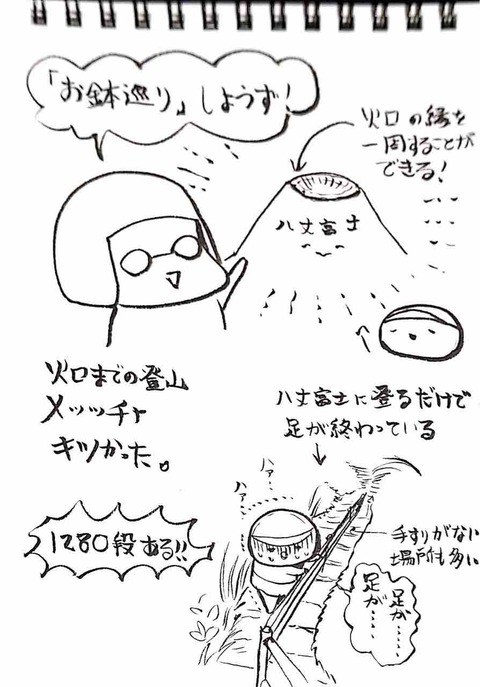 「お鉢巡り」しようず!
火口の縁を
一周することが
できる!
八丈富士
火口までの登山
メッッチャ
キツかった。
八丈富士に登るだけで
足が終わっている
1280段ある!!
ハァ…
ハァ…
手すりがない
場所も多い
足が……
足が……